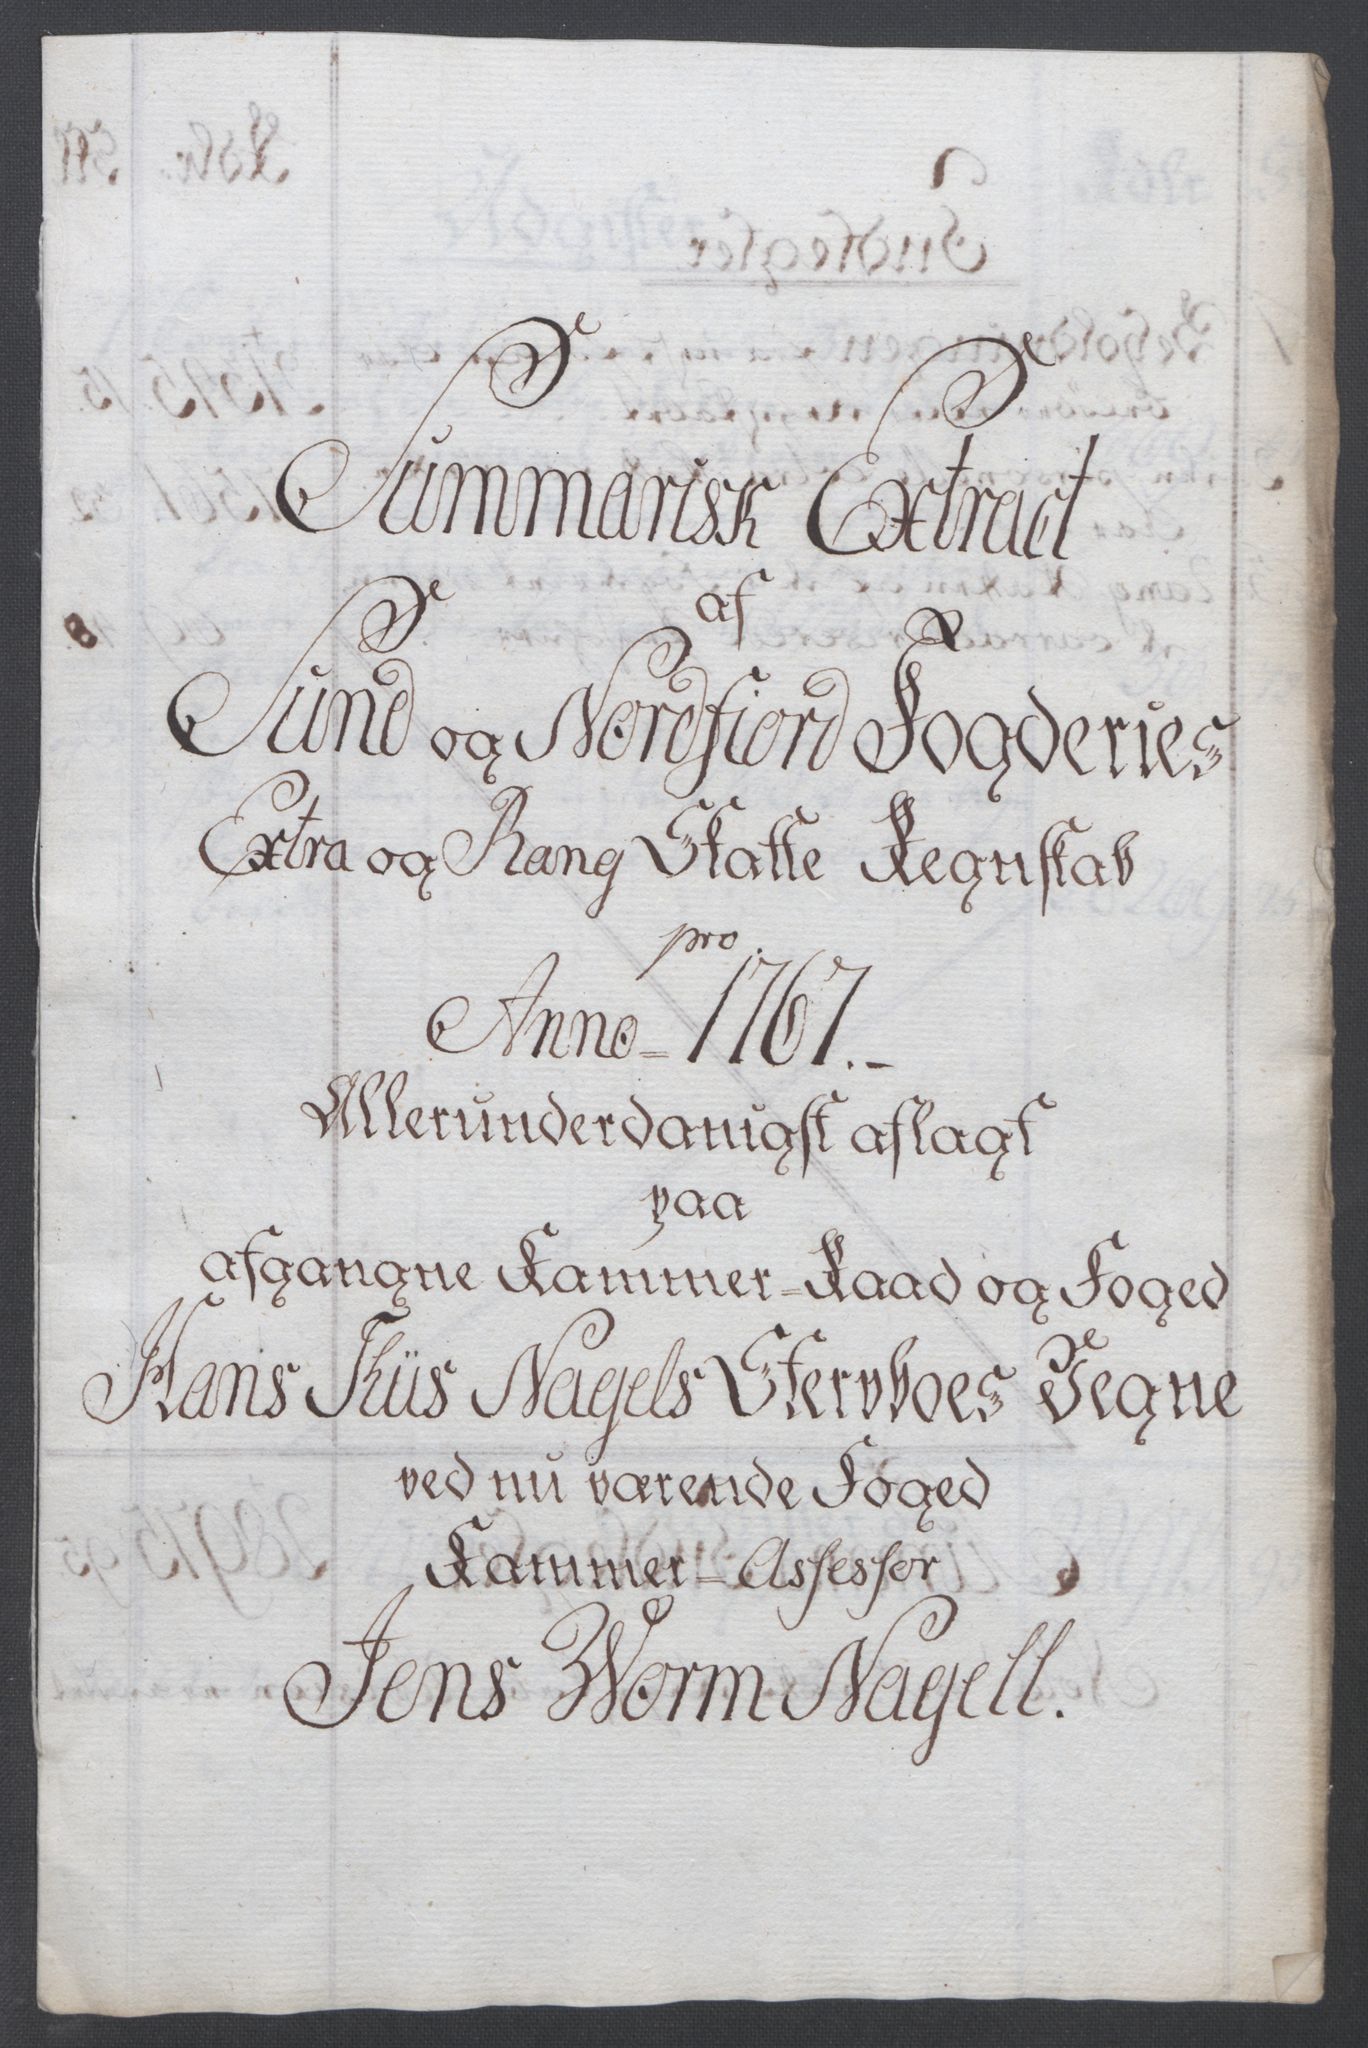 Summarisk Extract
af
Sund og Nordfiord Fogderies
Extra og Rang Skatte Regnskab
pro.
Anno 1767.
Allerunderdanigst aflagt
paa
afgangne Kammer-Raad og Foged
Hans Thiis Nagels Stervboes Vegne
ved nu værende Foged
Kammer-Assessor
Jens Worm Nagell.